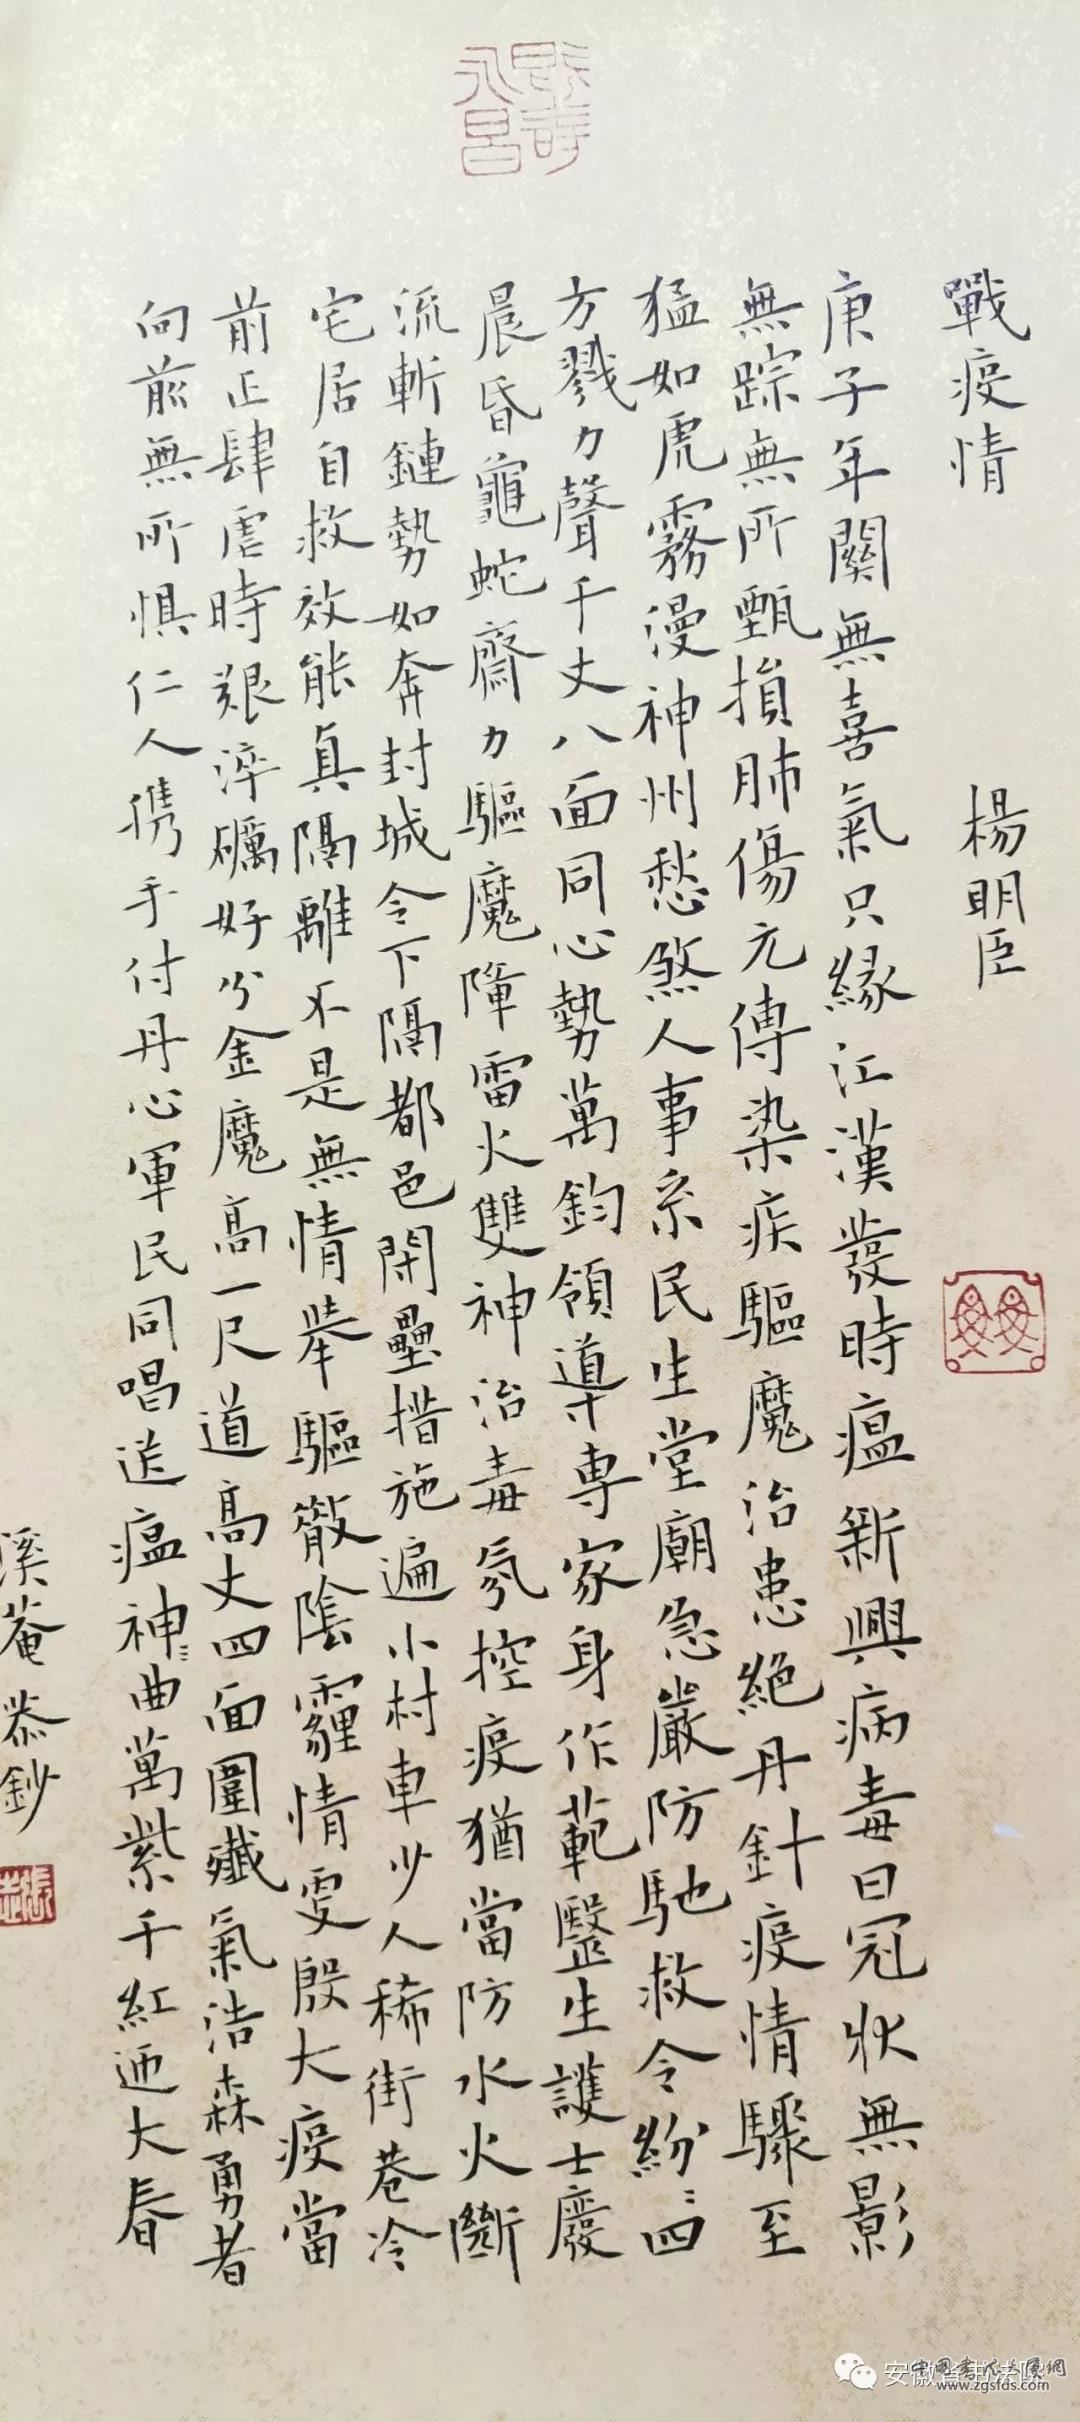 既壽
永昌
戰疫情
楊明臣
庚子年關無喜氣只緣江漢發時瘟新興病毒曰冠狀無影
無踪無所甄損肺傷元傳染疾驅魔治患絕丹針疫情驟至
猛如虎霧漫神州愁煞人事系民生堂廟急嚴防馳救令紛〻四
方戮力聲千丈八面同心勢萬鈞領導專家身作範醫生護士廢
晨昏龜蛇齋力驅魔障雷火雙神治毒氛控疫猶當防水火斷
流斬鏈勢如奔封城令下隔都邑閉壘措施遍小村車少人稀街巷冷
宅居自救效能真隔離不是無情舉驅散陰霾情更殷大疫當
前正肆虐時艱淬礪好分金魔高一尺道高丈四面圍殲氣浩森勇者
向前無所懼仁人携手付丹心軍民同唱送瘟神〻曲萬紫千紅迎大春
溪菴恭鈔
安徽省书法院
中国书法大展網
www.zgsfds.com